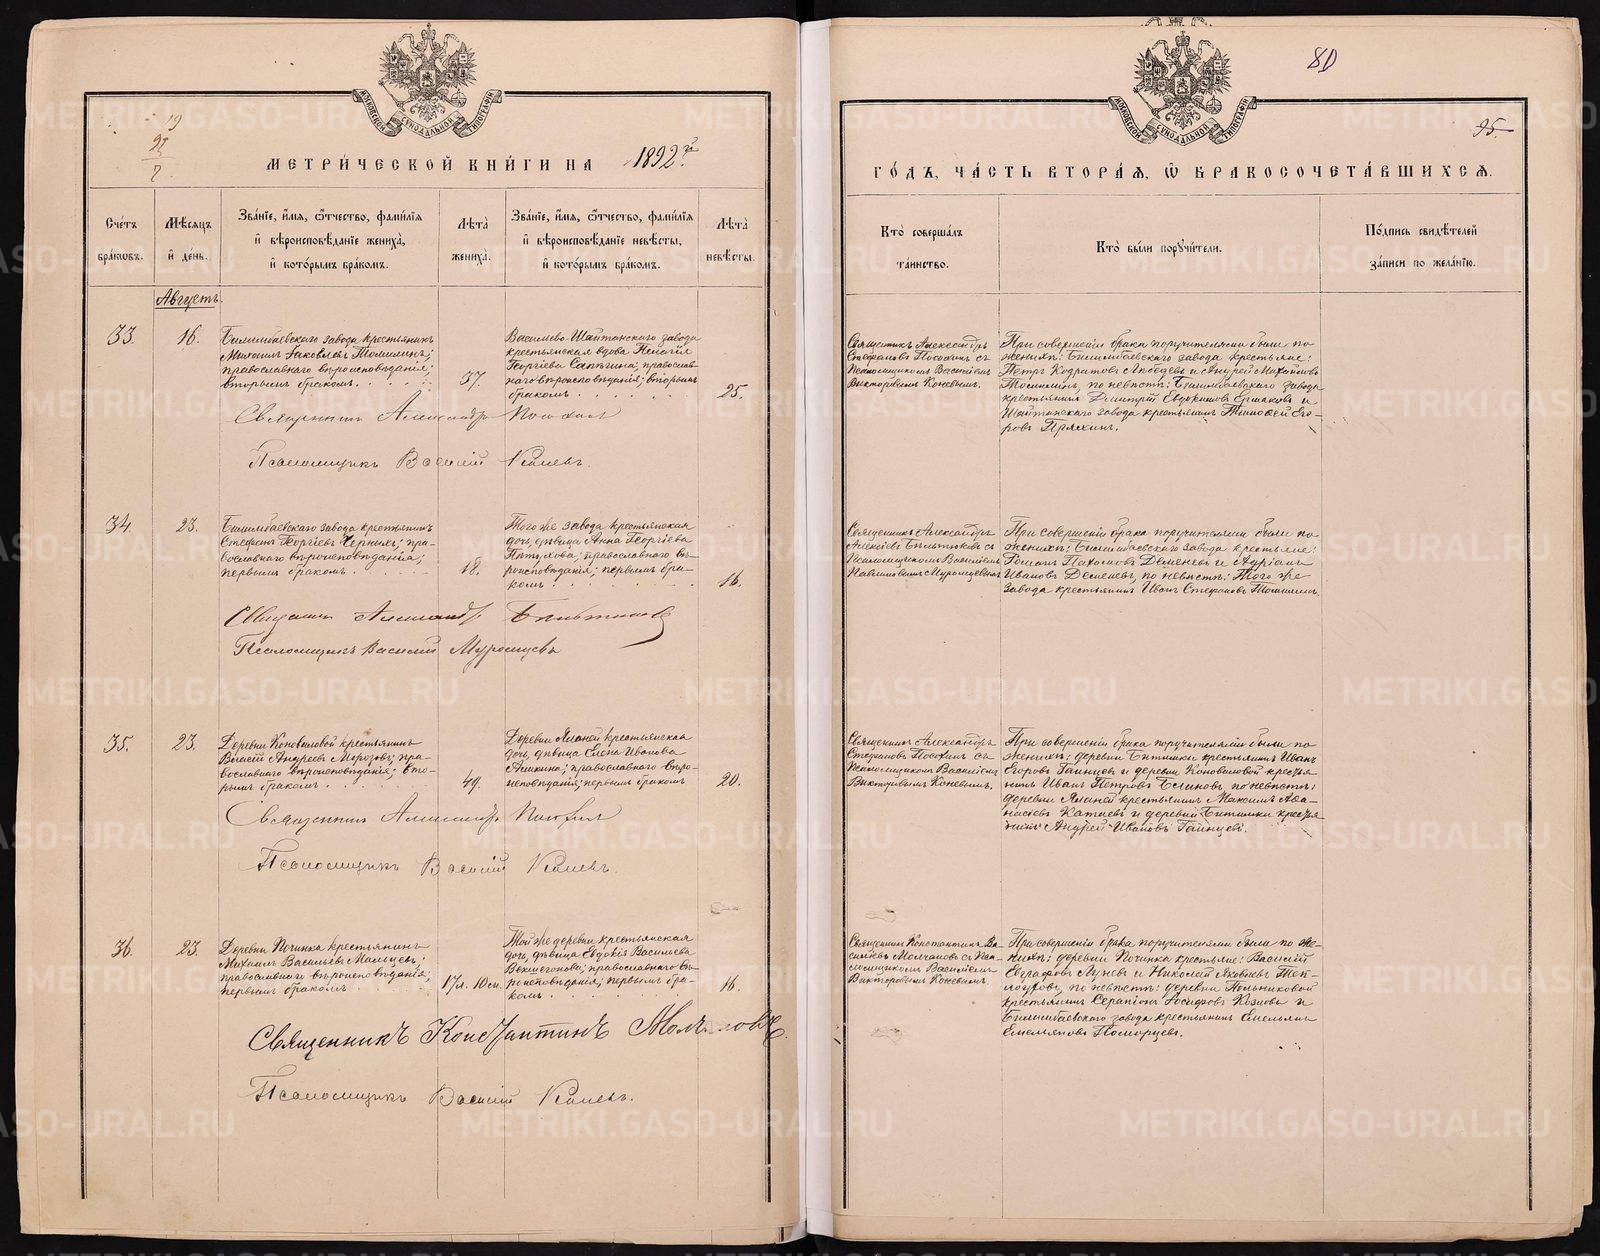 МОСКОВСКОЙ СѴНОДАЛЬНОЙ ТИПОГРАФІИ
19
92
МЕТРИ́ЧЕСКОЙ КНИ́ГИ НА 1892 й
Сче́тъ бра́кѡвъ.
Мѣ́сяцъ и҆ де́нь.
Зва́нїе, и҆́мѧ, ѻ҆́тчество, фамі́лїѧ и҆ вѣроисповѣ́данїе жениха̀, и҆ кото́рымъ бра́комъ.
Лѣ́та жениха̀.
Зва́нїе, и҆́мѧ, ѻ҆́тчество, фамі́лїѧ и҆ вѣроисповѣ́данїе невѣ́сты, и҆ кото́рымъ бра́комъ.
Лѣ́та невѣ́сты.
Августъ.
33.
16.
Билимбаевскаго завода крестьянинъ
Михаилъ Іаковлевъ Томилинъ;
православнаго вѣроисповѣданія;
вторымъ бракомъ.
37.
Васильево-Шайтанскаго завода
крестьянская вдова Пелагія
Георгіева Сапѣгина; православ-
наго вѣроисповѣданія; вторымъ
бракомъ.
25.
Священникъ Александръ Пososхинъ
Псаломщикъ Василій Коневъ.
34
23.
Билимбаевскаго завода крестьянинъ
Стефанъ Георгіевъ Черныхъ; пра-
вославнаго вѣроисповѣданія;
первымъ бракомъ.
18.
Того же завода крестьянская
дочь, дѣвица Анна Георгіева
Пѣтухова; православнаго вѣ-
роисповѣданія; первымъ бра-
комъ.
16.
Священникъ Александръ Бѣльтюковъ
Псаломщикъ Василій Муромцевъ
35.
23.
Деревни Коноваловой крестьянинъ
Андреевъ Морозовъ; пра-
вославнаго вѣроисповѣданія; вто-
рымъ бракомъ.
49.
крестьянская
дочь, дѣвица Елена Иванова
православнаго вѣро-
исповѣданія; первымъ бракомъ
20.
Священникъ Александръ
Псаломщикъ Василій Коневъ.
36.
23.
Деревни Починка крестьянинъ
Михаилъ Васильевъ Мальцевъ;
православнаго вѣроисповѣданія;
первымъ бракомъ
17 л. 10 м.
Той же деревни крестьянская
дочь, дѣвица Евдокія Васильева
православнаго вѣ-
роисповѣданія; первымъ бра-
комъ.
16.
Священникъ Константинъ Молчановъ.
Псаломщикъ Василій Коневъ.
МОСКОВСКОЙ СѴНОДАЛЬНОЙ ТИПОГРАФІИ
80
95
ГО́ДЪ, ЧА́СТЬ ВТОРА́Ѧ, Ѽ БРАКОСОЧЕТА́ВШИХСѦ.
Кто̀ соверша́лъ та́инство.
Кто̀ бы́ли порꙋчи́тели.
По́дпись свидѣ́телей за́писи по жела́нїю.
Священникъ Александръ
Стефановъ съ
Псаломщикомъ Василіемъ
Викторовымъ Коневымъ.
При совершеніи брака поручителями были по
женихѣ: Билимбаевскаго завода крестьяне:
Петръ Кодратовъ Лебедевъ и Андрей Михайловъ
Томилинъ, по невѣстѣ: Билимбаевскаго завода
крестьянинъ Димитрій Евдокимовъ Ермаковъ и
Шайтанскаго завода крестьянинъ Тимофей Его-
ровъ Пряхинъ.
Священникъ Александръ
Алексіевъ Бѣльтюковъ съ
Псаломщикомъ Василіемъ
Павловымъ Муромцевымъ
При совершеніи брака поручителями были по
женихѣ: Билимбаевскаго завода крестьяне:
Романъ Пахомовъ Деменевъ и Адріанъ
Ивановъ Деменевъ, по невѣстѣ: Того же
завода крестьянинъ Иванъ Стефановъ Томилинъ.
Священникъ Александръ
Стефановъ съ
Псаломщикомъ Василіемъ
Викторовымъ Коневымъ.
При совершеніи брака поручителями были по
женихѣ: деревни Битимки крестьянинъ Иванъ
Егоровъ Галицевъ и деревни Коноваловой кресть-
янинъ Иванъ Петровъ Блиновъ, по невѣстѣ:
деревни крестьянинъ Максимъ Афа-
насіевъ Катаевъ и деревни Битимки крестья-
нинъ Андрей Ивановъ Галицевъ.
Священникъ Константинъ Ва-
сильевъ Молчановъ съ Пса-
ломщикомъ Василіемъ
Викторовымъ Коневымъ.
При совершеніи брака поручителями были по же-
нихѣ: деревни Починка крестьяне: Василій
Евграфовъ Лузевъ и Николай Яковлевъ Тек-
лоуровъ, по невѣстѣ: деревни Польниковой
крестьянинъ Серапіонъ Іосифовъ Козловъ и
Билимбаевскаго завода крестьянинъ Емельянъ
Емельяновъ Поморцевъ.
METRIKI.GASO-URAL.RU